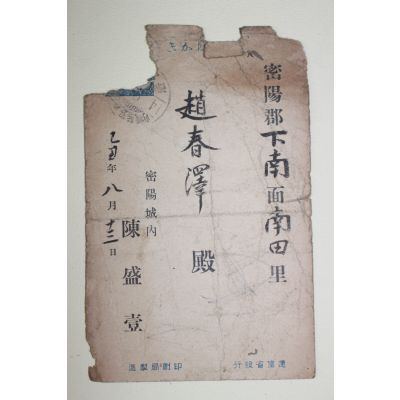 密陽郡下南面南田里
趙春澤殿
密陽城內
陳盛壹
乙丑年八月十三日
遞信省發行
印刷局製造